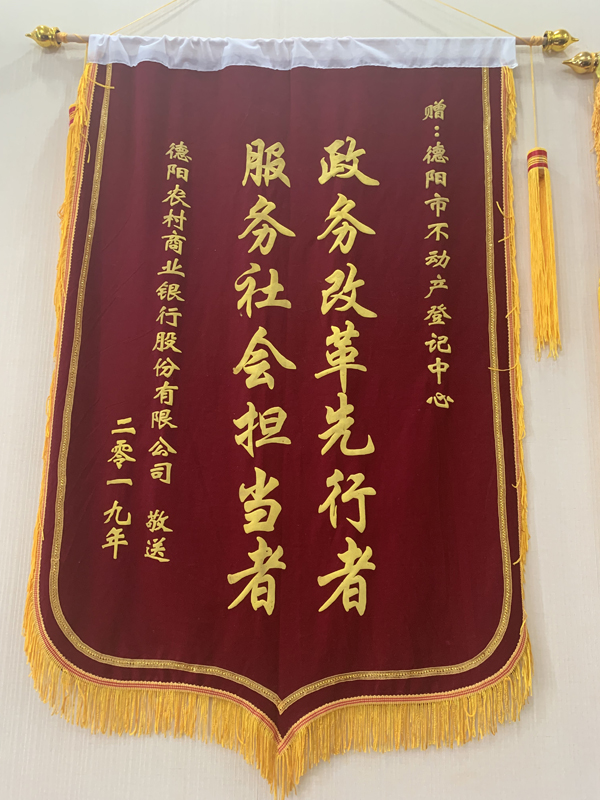 赠：德阳市不动产登记中心
政务改革先行者
服务社会担当者
德阳农村商业银行股份有限公司 敬送
二零一九年